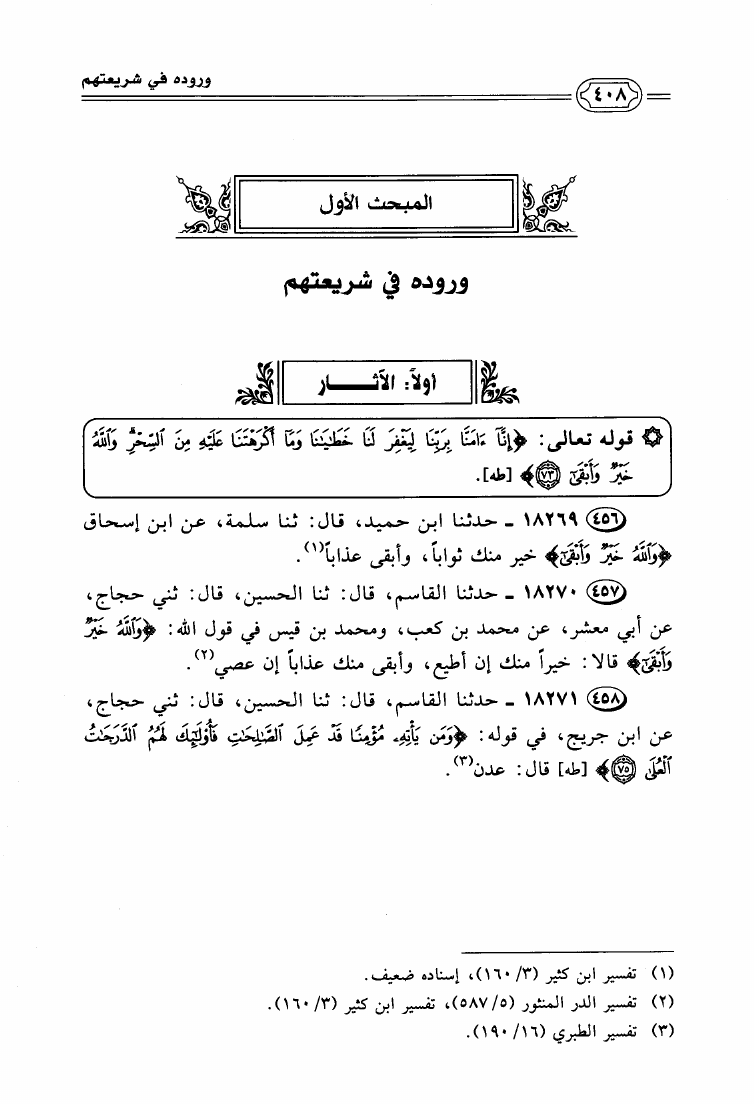 وروده في شريعتهم
٤٠٨
المبحث الأول
وروده في شريعتهم
أولاً: الآثـــــار
۞ قوله تعالى: ﴿إِنَّآ ءَامَنَّا بِرَبِّنَا لِيَغْفِرَ لَنَا خَطَٰيَٰنَا وَمَآ أَكْرَهْتَنَا عَلَيْهِ مِنَ ٱلسِّحْرِ ۗ وَٱللَّهُ
خَيْرٌ وَأَبْقَىٰٓ ۝٧٣﴾ [طه].
٤٥٦ ١٨٢٦٩ ـ حدثنا ابن حميد، قال: ثنا سلمة، عن ابن إسحاق
﴿وَٱللَّهُ خَيْرٌ وَأَبْقَىٰٓ﴾ خير منك ثواباً، وأبقى عذاباً(١).
٤٥٧ ١٨٢٧٠ ـ حدثنا القاسم، قال: ثنا الحسين، قال: ثني حجاج،
عن أبي معشر، عن محمد بن كعب، ومحمد بن قيس في قول الله: ﴿وَٱللَّهُ خَيْرٌ
وَأَبْقَىٰٓ﴾ قالا: خيراً منك إن أطيع، وأبقى منك عذاباً إن عصي(٢).
٤٥٨ ١٨٢٧١ ـ حدثنا القاسم، قال: ثنا الحسين، قال: ثني حجاج،
عن ابن جريج، في قوله: ﴿وَمَن يَأْتِهِۦ مُؤْمِنًا قَدْ عَمِلَ ٱلصَّٰلِحَٰتِ فَأُو۟لَٰٓئِكَ لَهُمُ ٱلدَّرَجَٰتُ
ٱلْعُلَىٰ ۝٧٥﴾ [طه] قال: عدن(٣).
(١) تفسير ابن كثير (٣/ ١٦٠)، إسناده ضعيف.
(٢) تفسير الدر المنثور (٥/ ٥٨٧)، تفسير ابن كثير (٣/ ١٦٠).
(٣) تفسير الطبري (١٦/ ١٩٠).